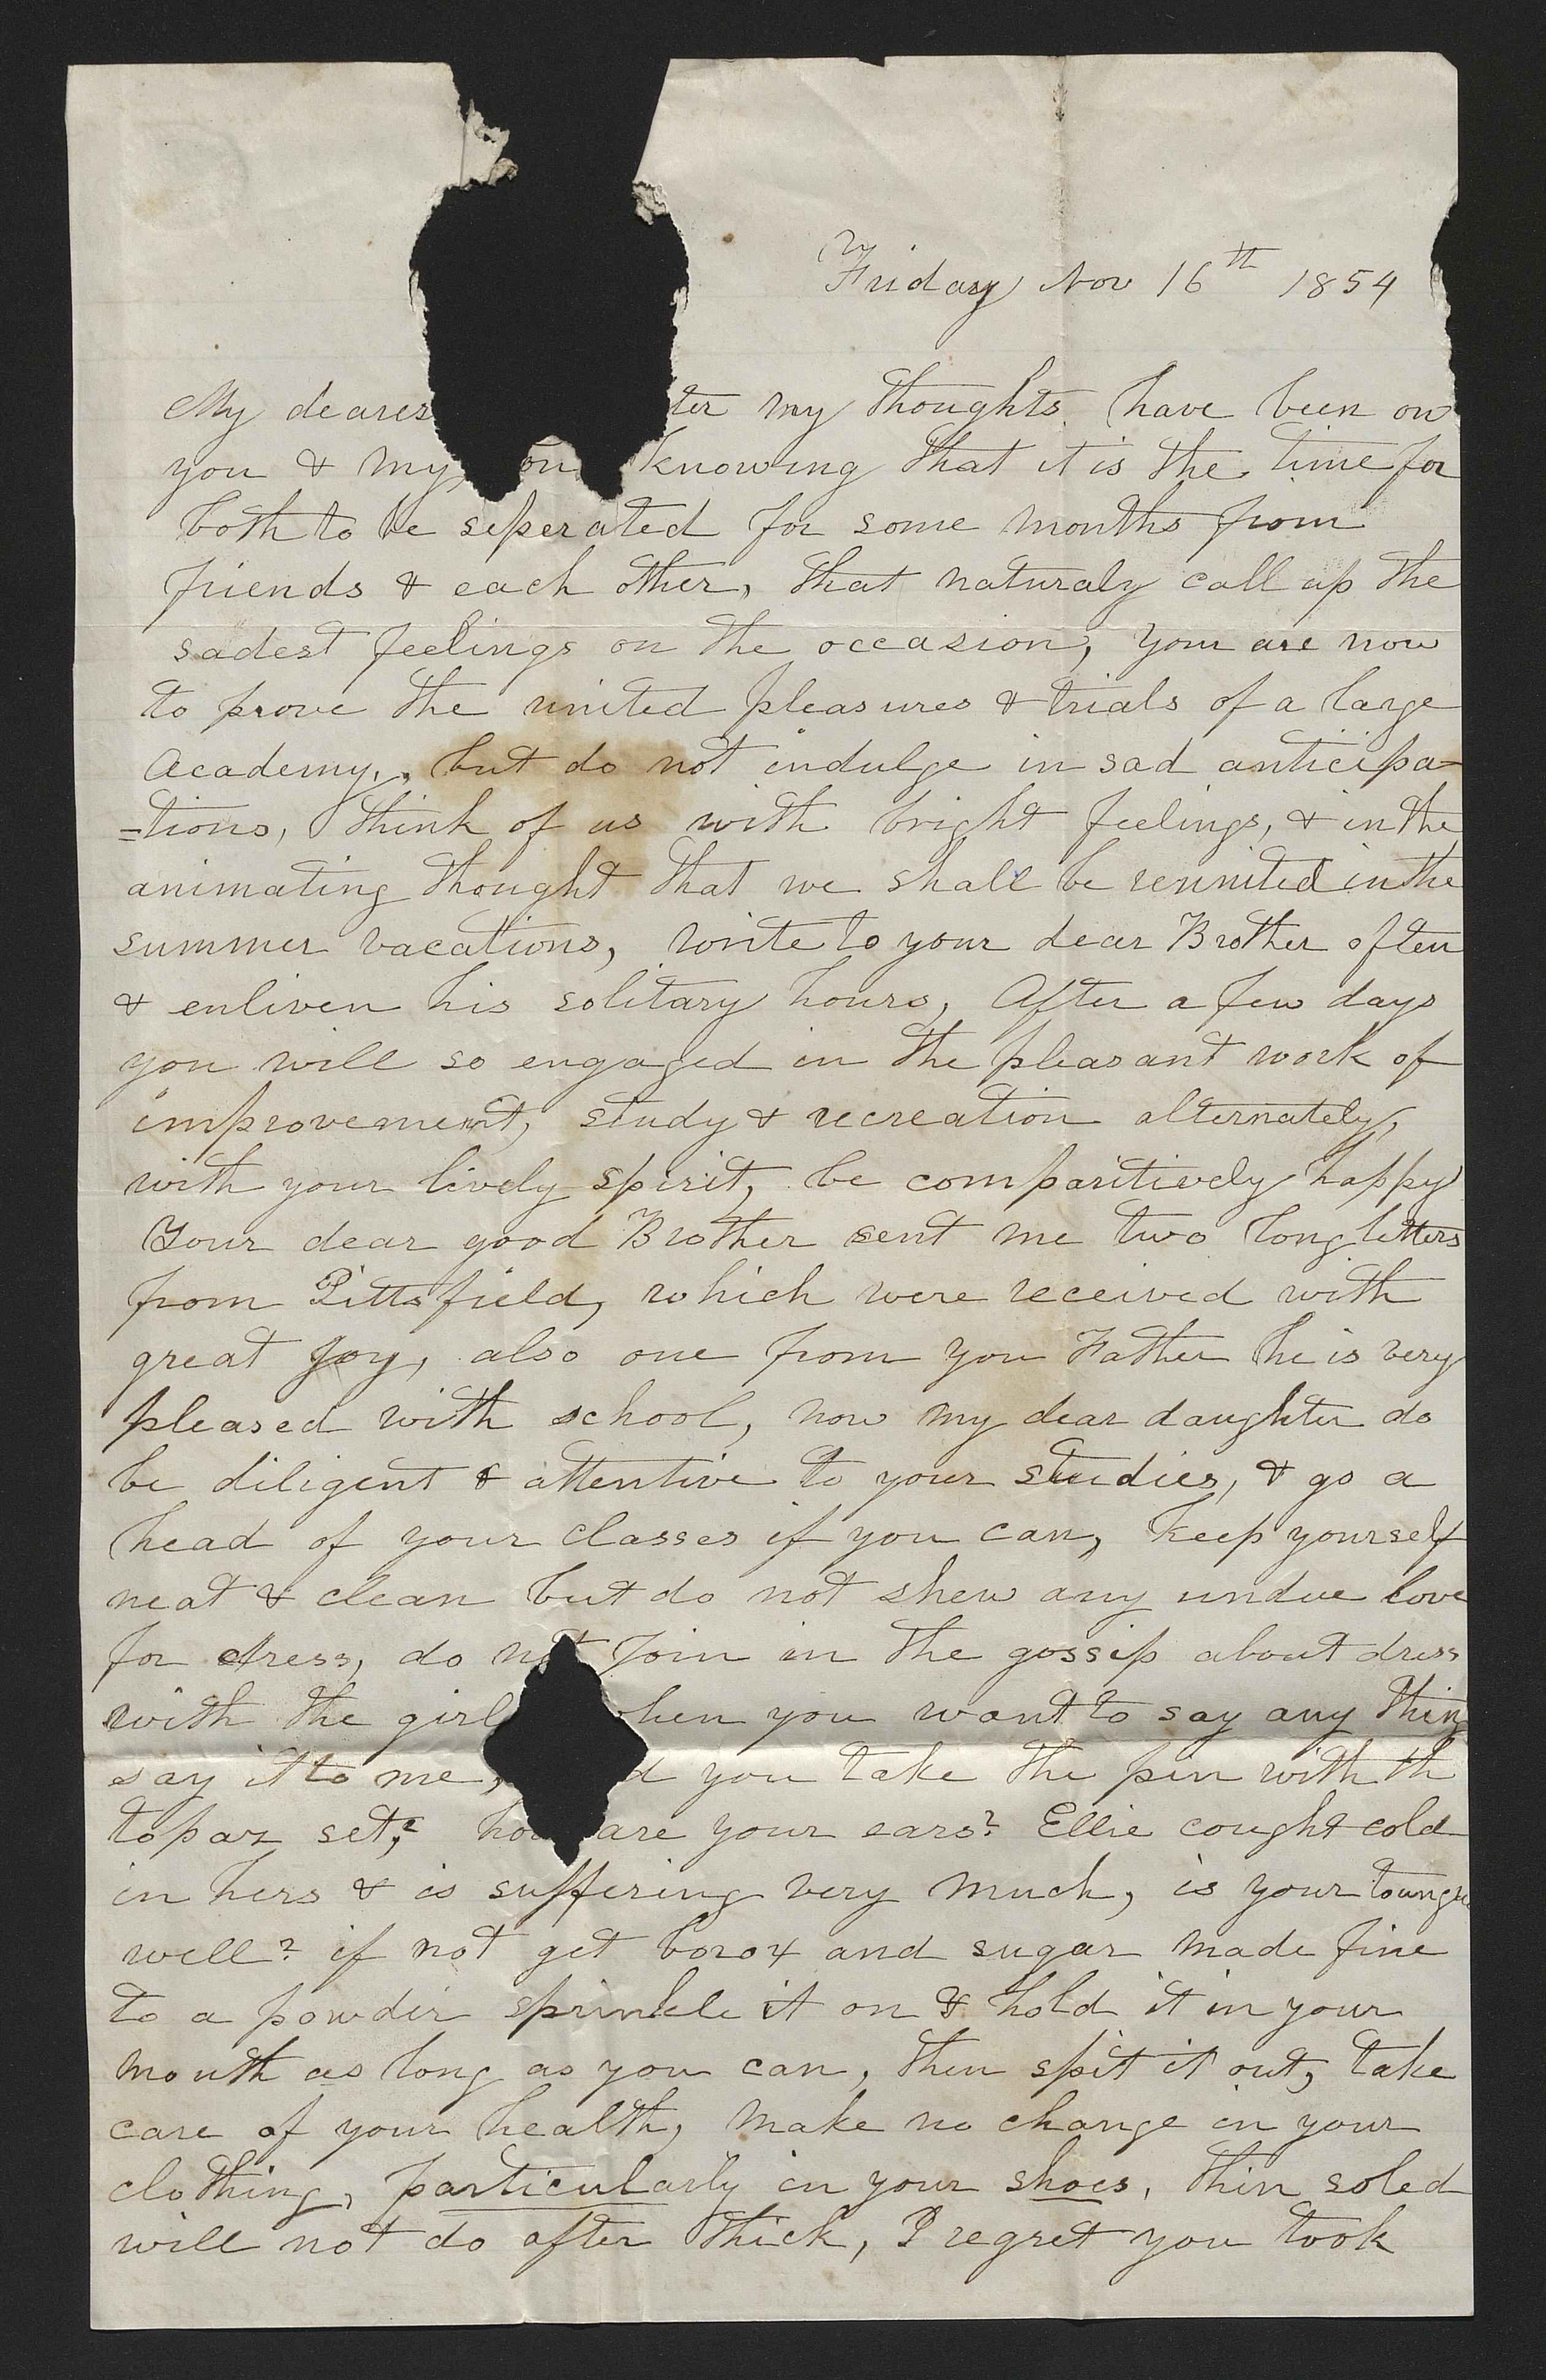 Friday Nov 16th 1854
My deares ter my thoughts have been on
you & my son knowing that it is the time for
both to be seperated for some months from
friends & each other, that naturaly call up the
sadest feelings on the occasion, you are now
to prove the united pleasures & trials of a large
Academy, but do not indulge in sad anticipa=
=tions, think of us with bright feelings, & in the
animating thought that we shall be reunited in the
summer vacations, write to your dear Brother often
& enliven his solitary hours, After a few days
you will so engaged in the pleasant work of
improvement, study & recreation alternately,
with your lively spirit, be comparitively happy
Your dear good Brother sent me two long letters
from Pittsfield, which were received with
great joy, also one from you Father he is very
pleased with school, now my dear daughter do
be diligent & attentive to your studies, & go a
head of your classes if you can, keep yourself
neat & clean but do not shew any undue love
for dress, do not join in the gossip about dress
with the girl hen you want to say any thing
say it to me, d you take the pin with th
topaz set? how are your ears? Ellie cought cold
in hers & is suffering very much, is your toungue
well? if not get borox and sugar made fine
to a powder sprinkle it on & hold it in your
mouth as long as you can, then spit it out, take
care of your health, make no change in your
clothing, particularly in your shoes, thin soled
will not do after thick, I regret you took